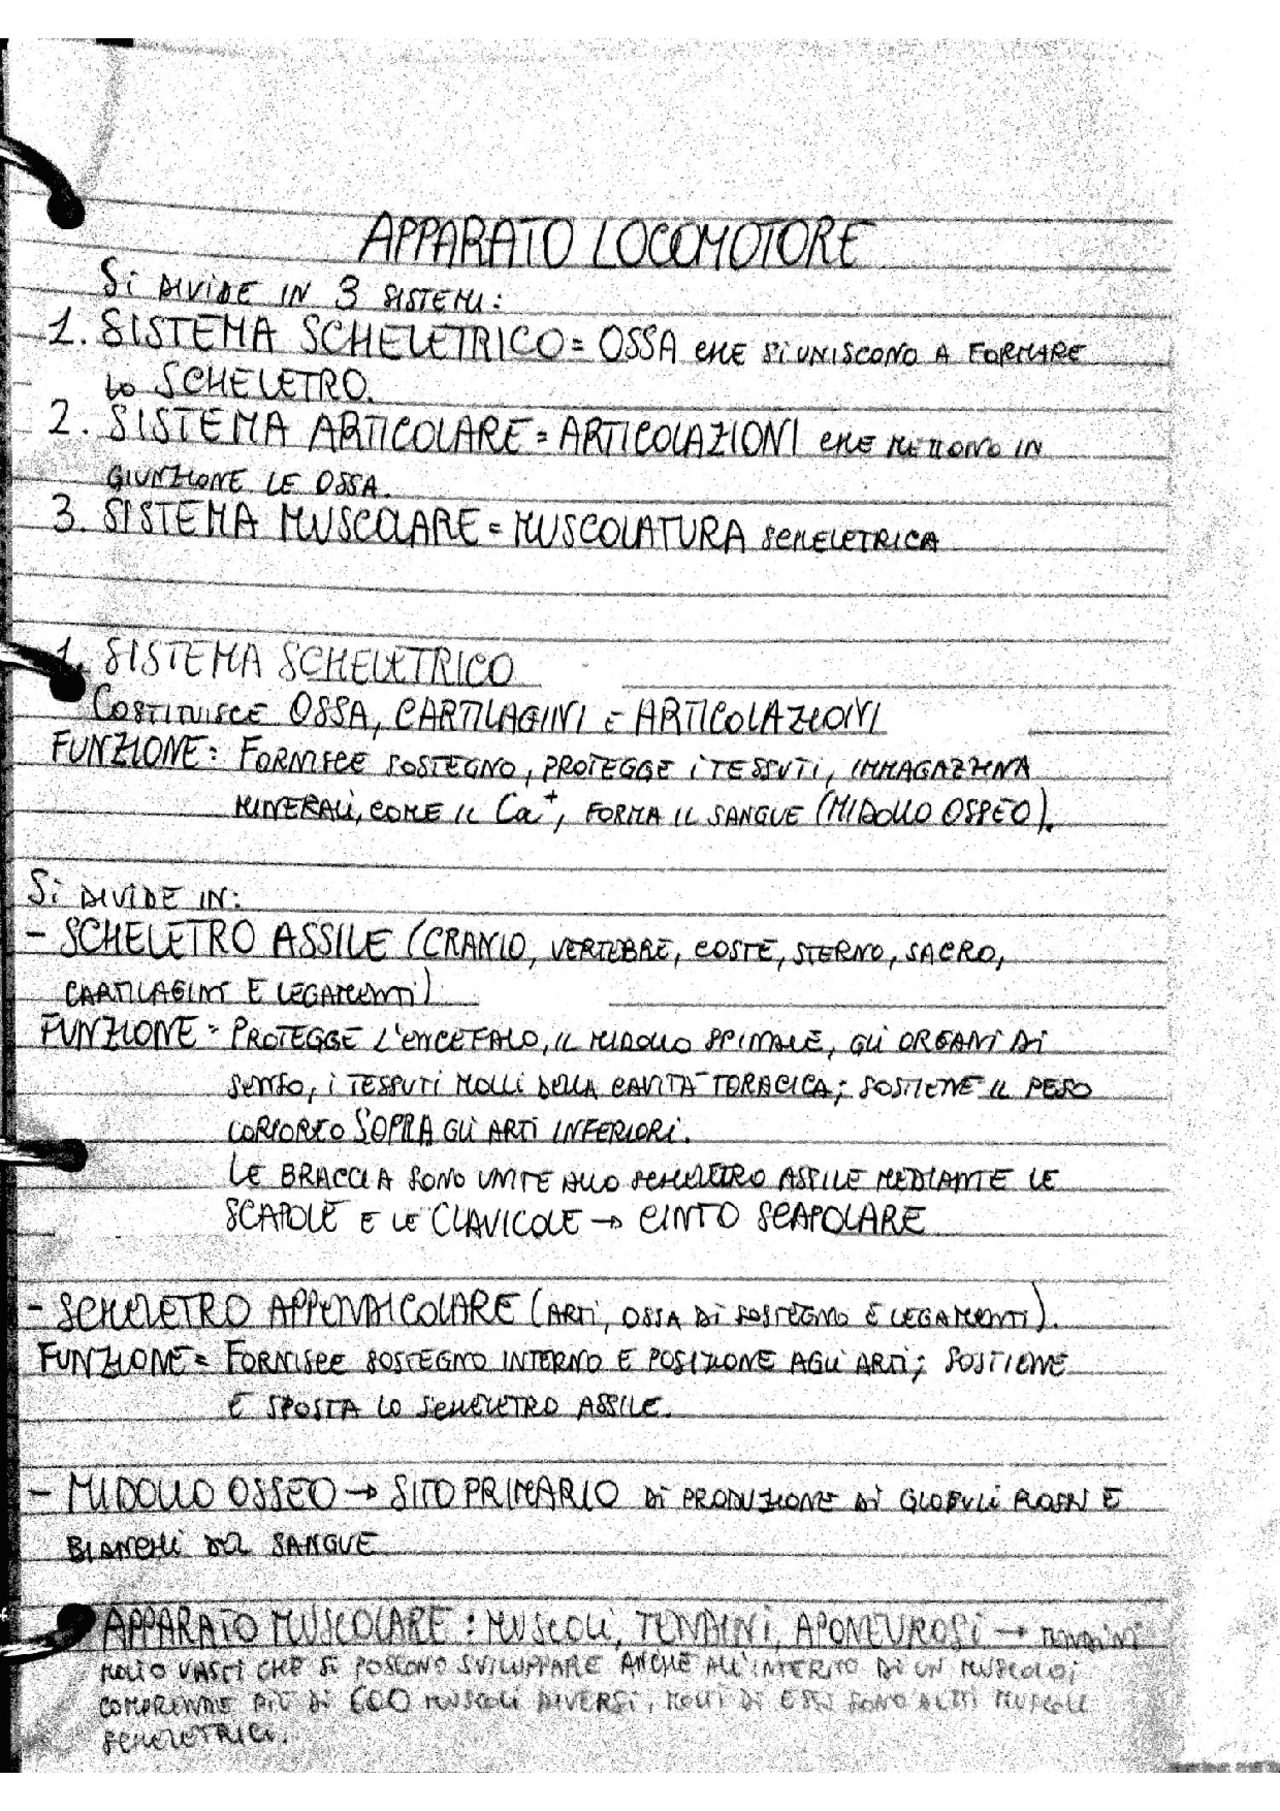 APPARATO LOCOMOTORE
Si DIVIDE IN 3 SISTEMI:
1. SISTEMA SCHELETRICO = OSSA CHE Si UNISCONO A FORMARE
LO SCHELETRO.
2. SISTEMA ARTICOLARE = ARTICOLAZIONI CHE METTONO IN
GIUNZIONE LE OSSA.
3. SISTEMA MUSCOLARE = MUSCOLATURA SCHELETRICA
1. SISTEMA SCHELETRICO
COSTITUISCE OSSA, CARTILAGINI E ARTICOLAZIONI
FUNZIONE: FORNISCE SOSTEGNO, PROTEGGE i TESSUTI, IMMAGAZZINA
MINERALI, COME IL Ca⁺, FORMA IL SANGUE (MIDOLLO OSSEO).
Si DIVIDE IN:
- SCHELETRO ASSILE (CRANIO, VERTEBRE, COSTE, STERNO, SACRO,
CARTILAGINI E LEGAMENTI)
FUNZIONE = PROTEGGE L'ENCEFALO, IL MIDOLLO SPINALE, GLI ORGANI Di
SENSO, i TESSUTI MOLLI DELLA CAVITÀ TORACICA; SOSTIENE IL PESO
CORPOREO SOPRA GLI ARTI INFERIORI.
LE BRACCIA SONO UNITE ALLO SCHELETRO ASSILE MEDIANTE LE
SCAPOLE E LE CLAVICOLE → CINTO SCAPOLARE
- SCHELETRO APPENDICOLARE (ARTI, OSSA Di SOSTEGNO E LEGAMENTI).
FUNZIONE = FORNISCE SOSTEGNO INTERNO E POSIZIONE AGLI ARTI; SOSTIENE
E SPOSTA LO SCHELETRO ASSILE.
- MIDOLLO OSSEO → SITO PRIMARIO Di PRODUZIONE Di GLOBULI ROSSI E
BIANCHI DEL SANGUE
APPARATO MUSCOLARE: MUSCOLI, TENDINI, APONEUROSI → TENDINI
MOLTO VASTI CHE Si POSSONO SVILUPPARE ANCHE ALL'INTERNO Di UN MUSCOLO;
COMPRENDE PIÙ Di 600 MUSCOLI DIVERSI, MOLTI Di ESSI SONO MUSCOLI
SCHELETRICI.